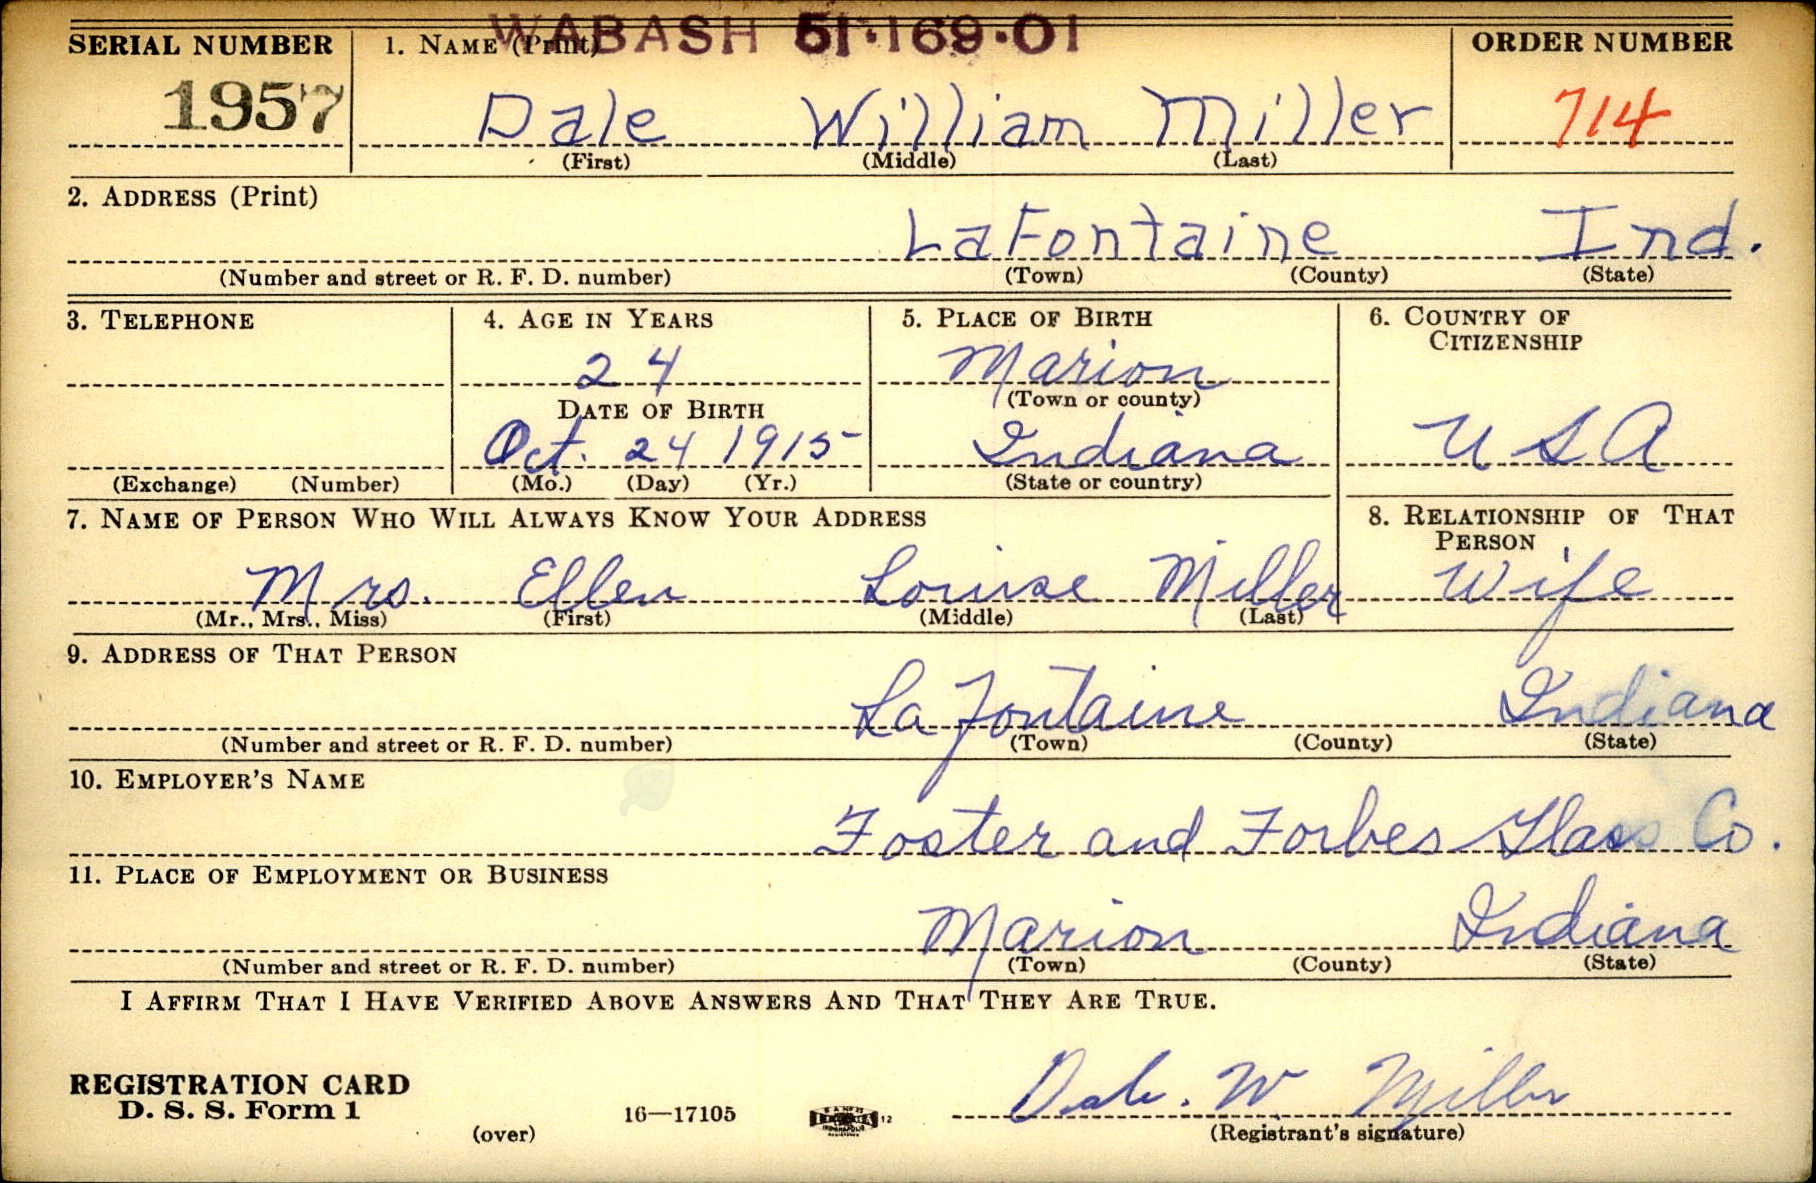 WABASH 51·169·01
SERIAL NUMBER 1. NAME (Print) ORDER NUMBER
1957 Dale William Miller 714
(First) (Middle) (Last)
2. ADDRESS (Print)
LaFontaine Ind.
(Number and street or R. F. D. number) (Town) (County) (State)
3. TELEPHONE 4. AGE IN YEARS 5. PLACE OF BIRTH 6. COUNTRY OF
CITIZENSHIP
24 Marion
DATE OF BIRTH (Town or county)
Oct. 24 1915 Indiana USA
(Exchange) (Number) (Mo.) (Day) (Yr.) (State or country)
7. NAME OF PERSON WHO WILL ALWAYS KNOW YOUR ADDRESS 8. RELATIONSHIP OF THAT
PERSON
Mrs. Ellen Louise Miller Wife
(Mr., Mrs., Miss) (First) (Middle) (Last)
9. ADDRESS OF THAT PERSON
La Fontaine Indiana
(Number and street or R. F. D. number) (Town) (County) (State)
10. EMPLOYER'S NAME
Foster and Forbes Glass Co.
11. PLACE OF EMPLOYMENT OR BUSINESS
Marion Indiana
(Number and street or R. F. D. number) (Town) (County) (State)
I AFFIRM THAT I HAVE VERIFIED ABOVE ANSWERS AND THAT THEY ARE TRUE.
REGISTRATION CARD
D. S. S. Form 1
(over) 16—17105 12
Dale. W. Miller
(Registrant's signature)